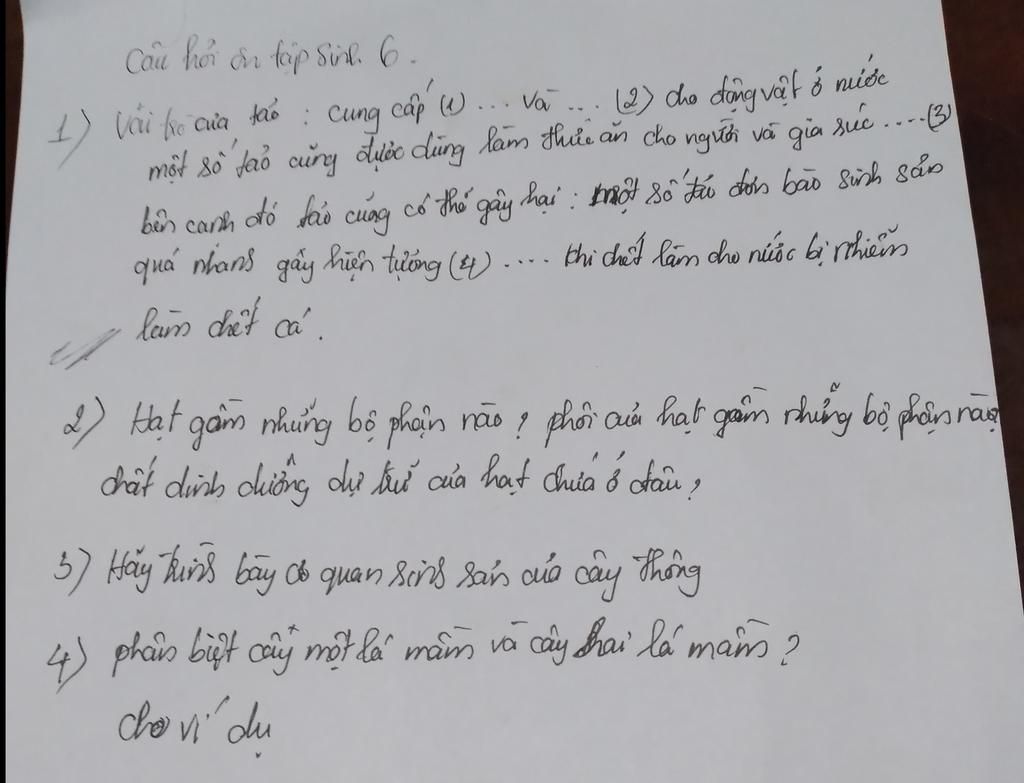 Câu hỏi ôn tập sinh 6.
1) Vai trò của tảo : cung cấp (1) ... và ... (2) cho động vật ở nước
một số tảo cũng được dùng làm thức ăn cho người và gia súc ..... (3)
bên cạnh đó tảo cũng có thể gây hại : một số tảo đơn bào sinh sản
quá nhanh gây hiện tượng (4) .... khi chết làm cho nước bị nhiễm
làm chết cá.
2) Hạt gồm những bộ phận nào ? phôi của hạt gồm những bộ phận nào
chất dinh dưỡng dự trữ của hạt chứa ở đâu ?
3) Hãy trình bày cơ quan sinh sản của cây thông
4) phân biệt cây một lá mầm và cây hai lá mầm ?
Cho ví dụ